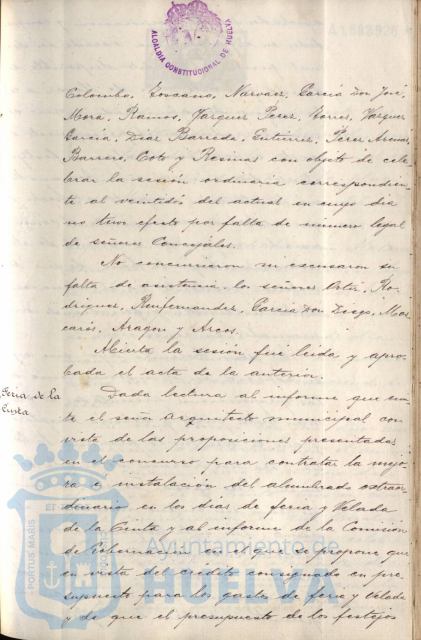 ALCALDIA CONSTITUCIONAL DE HUELVA
A1508926
Colombo, Toscano, Narvaez, Garcia Don José,
Mora, Ramos, Vazquez Perez, Torres, Vazquez
Garcia, Diaz Barreda, Gutierrez, Perez Arenas,
Barrero, Coto y Resinas con objeto de cele-
brar la sesión ordinaria correspondien-
te al veintidós del actual en cuyo dia
no tuvo efecto por falta de número legal
de señores Concejales.
No concurrieron ni excusaron su
falta de asistencia los señores Ortiz, Ro-
driguez, Garcia Don Diego, Mas-
carós, Aragon y Arcos.
Abierta la sesión fué leida y apro-
bada el acta de la anterior.
Feria de la
Cinta
Dada lectura al informe que emi-
te el señor Arquitecto municipal con
vista de las proposiciones presentadas
en el concurso para contratar la mejo-
ra e instalación del alumbrado extraor-
dinario en los dias de feria y Velada
de la Cinta y al informe de la Comisión
de Gobernación en el que se propone que
en vista del crédito consignado en pre-
supuesto para los gastos de feria y velada
y de que el presupuesto de los festejos
PORTUS MARIS
Ayuntamiento de
HUELVA